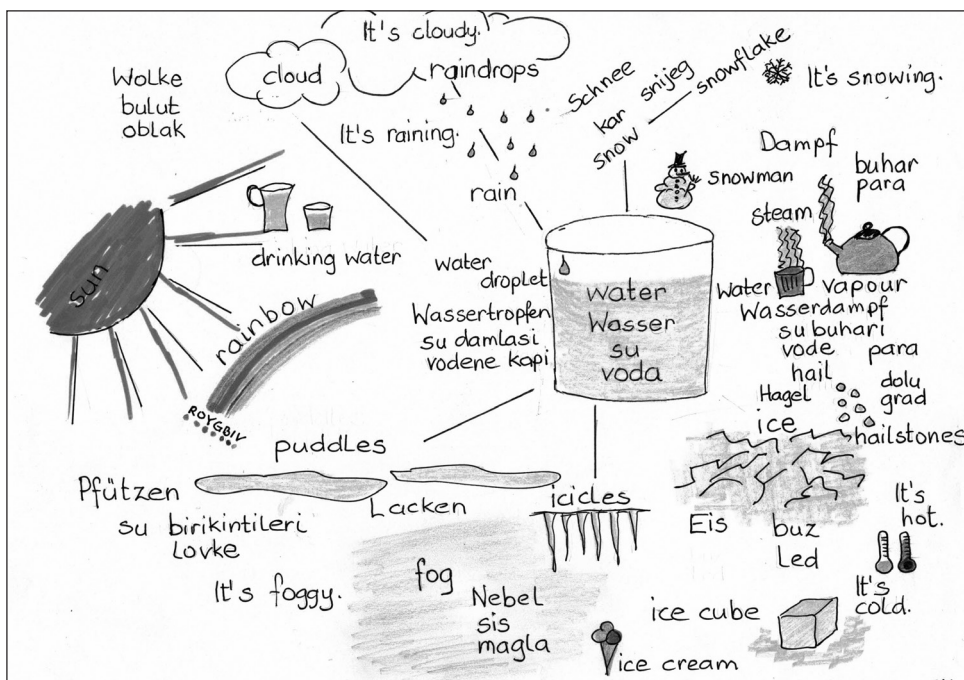 It's cloudy.
cloud
Wolke
bulut
oblak
raindrops
It's raining.
rain
Schnee
kar snijeg
snow
snowflake
It's snowing.
snowman
Dampf
buhar
para
steam
Water vapour
Wasserdampf
su buhari
vode para
sun
drinking water
rainbow
ROYGBIV
water
droplet
Wassertropfen
su damlasi
vodene kapi
Water
Wasser
su
voda
hail
Hagel
dolu
grad
hailstones
ice
Eis
buz
Led
puddles
Pfützen
Lacken
su birikintileri
Lovke
icicles
It's foggy.
fog
Nebel
sis
magla
It's
hot.
It's
cold.
ice cube
ice cream